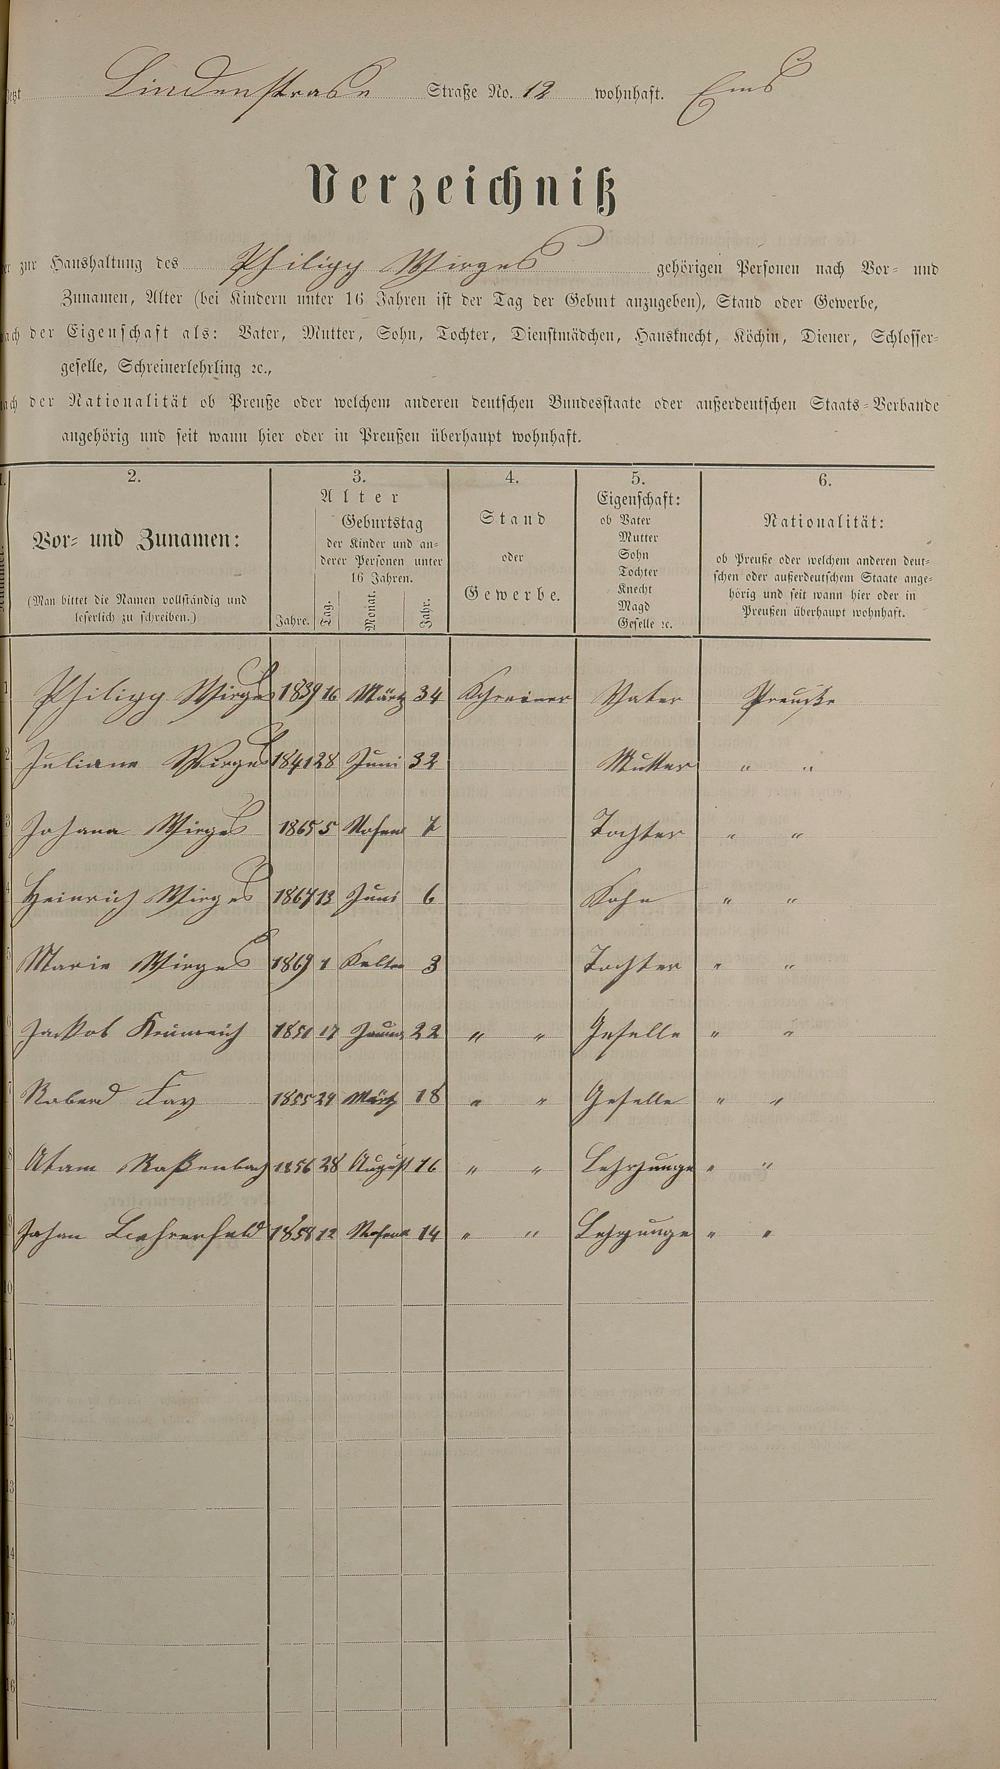 jetzt Lindenstrase Straße No. 12 wohnhaft. Ems
Verzeichniß
der zur Haushaltung des Philipp Wirges gehörigen Personen nach Vor- und
Zunamen, Alter (bei Kindern unter 16 Jahren ist der Tag der Geburt anzugeben), Stand oder Gewerbe,
nach der Eigenschaft als: Vater, Mutter, Sohn, Tochter, Dienstmädchen, Hausknecht, Köchin, Diener, Schlosser-
geselle, Schreinerlehrling ꝛc.,
nach der Nationalität ob Preuße oder welchem anderen deutschen Bundesstaate oder außerdeutschen Staats-Verbande
angehörig und seit wann hier oder in Preußen überhaupt wohnhaft.
1. 2. 3. 4. 5. 6.
Nummer.
Vor- und Zunamen:
(Man bittet die Namen vollständig und
leserlich zu schreiben.)
Alter
Geburtstag
der Kinder und an-
derer Personen unter
16 Jahren.
Jahre. Tag. Monat. Jahr.
Stand
oder
Gewerbe.
Eigenschaft:
ob Vater
Mutter
Sohn
Tochter
Knecht
Magd
Geselle ꝛc.
Nationalität:
ob Preuße oder welchem anderen deut-
schen oder außerdeutschem Staate ange-
hörig und seit wann hier oder in
Preußen überhaupt wohnhaft.
1 Philipp Wirges 1839 16 März 34 Schreiner Vater Preuße
2 Juliane Wirges 1841 28 Juni 32 Mutter " "
3 Johana Wirges 1865 5 Nofem 7 Tochter " "
4 Heinrich Wirges 1867 13 Juni 6 Sohn " "
5 Marie Wirges 1869 1 3 Tochter " "
6 Jackob 1851 17 22 " " Geselle " "
7 Roberd Fay 1855 24 März 18 " " Geselle " "
8 Atam Raßenbach 1856 28 August 16 " " Lehrjunge " "
9 Johan 1858 12 14 " " Lehrjunge " "
10
11
12
13
14
15
16